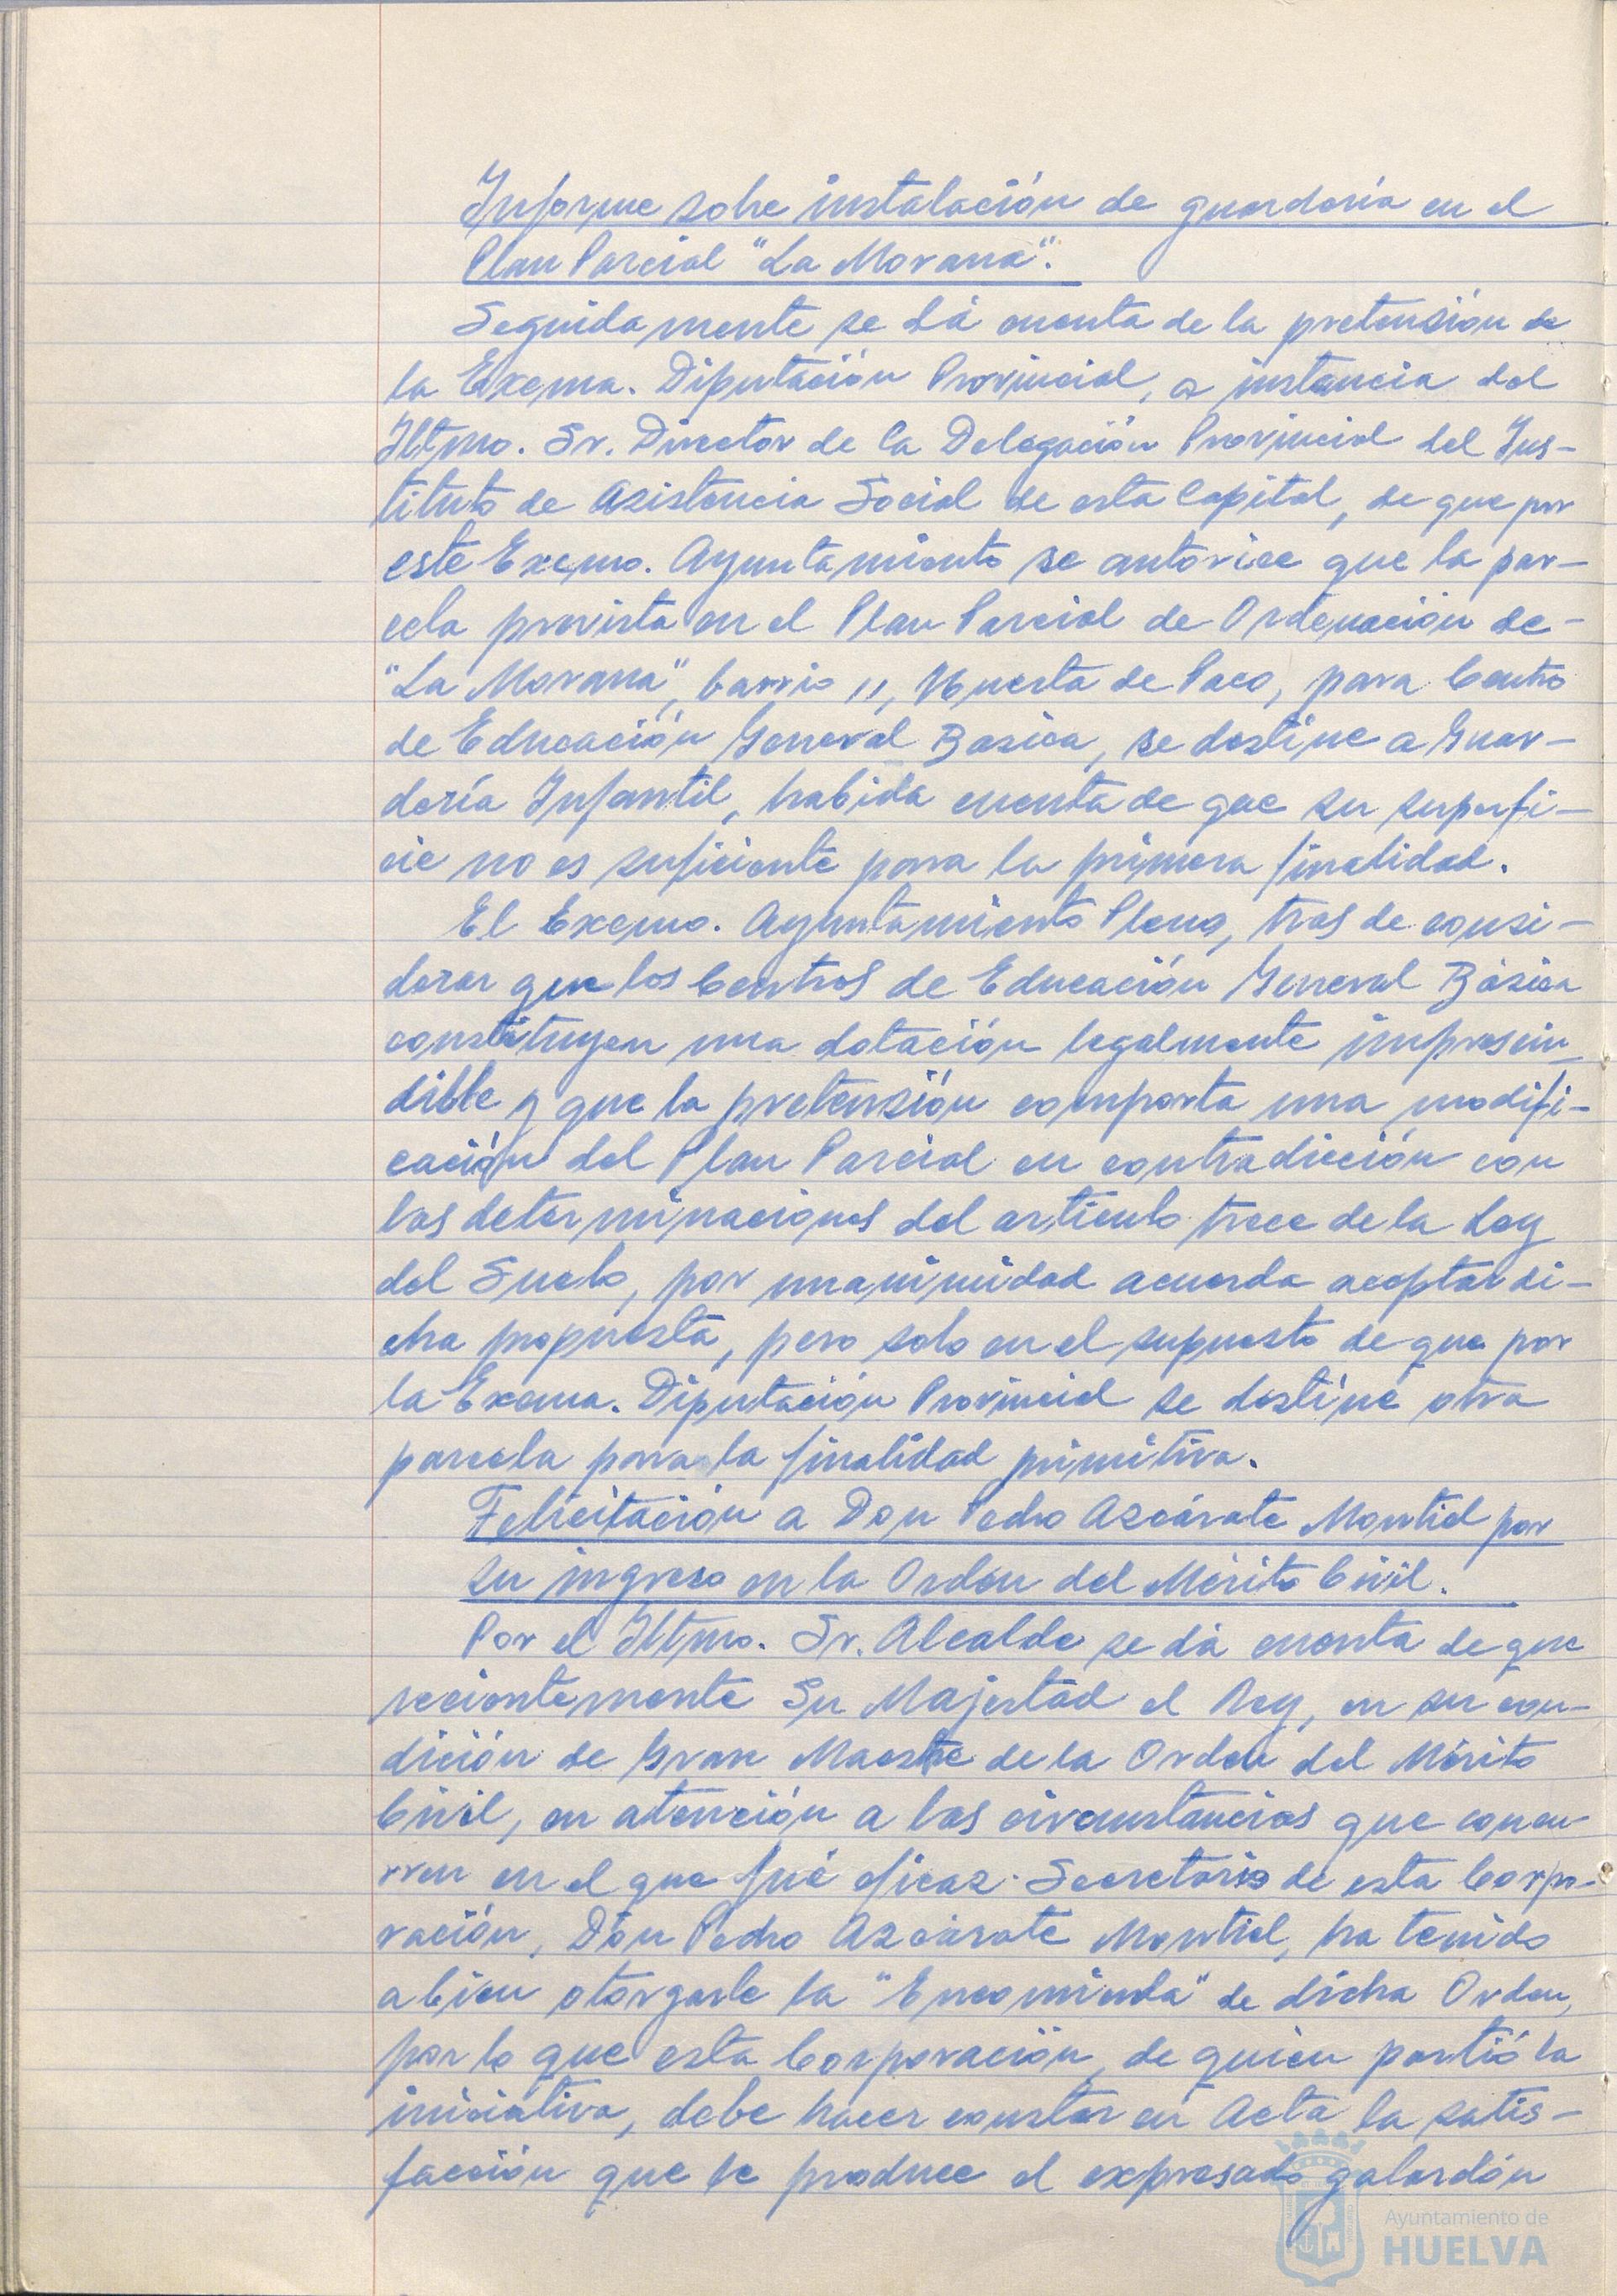 Informe sobre instalación de guardería en el
Plan Parcial "La Morana".
Seguidamente se dá cuenta de la pretensión de
la Excma. Diputación Provincial, a instancia del
Iltmo. Sr. Director de la Delegación Provincial del Ins-
tituto de Asistencia Social de esta Capital, de que por
este Excmo. Ayuntamiento se autorice que la par-
cela prevista en el Plan Parcial de Ordenación de-
"La Morana", barrio 11, Huerta de Paco, para Centro
de Educación General Basica, se destine a Guar-
dería Infantil, habida cuenta de que su superfi-
cie no es suficiente para la primera finalidad.
El Excmo. Ayuntamiento Pleno, tras de consi-
derar que los Centros de Educación General Básica
constituyen una dotación legalmente impresin-
dible y que la pretensión comporta una modifi-
cación del Plan Parcial en contradicción con
las determinaciones del artículo trece de la Ley
del Suelo, por unanimidad acuerda aceptar di-
cha propuesta, pero solo en el supuesto de que por
la Excma. Diputación Provincial se destine otra
parcela para la finalidad primitiva.
Felicitación a Don Pedro Azcárate Montiel por
su ingreso en la Orden del Mérito Civil.
Por el Iltmo. Sr. Alcalde se dá cuenta de que
recientemente Su Majestad el Rey, en su con-
dición de Gran Maestre de la Orden del Mérito
Civil, en atención a las circunstancias que concu-
rren en el que fué eficaz Secretario de esta Corpo-
ración, Don Pedro Azcárate Montiel, ha tenido
a bien otorgarle la "Encomienda" de dicha Orden,
por lo que esta Corporación, de quien partió la
iniciativa, debe hacer constar en Acta la satis-
facción que le produce el expresado galardón
Ayuntamiento de
HUELVA